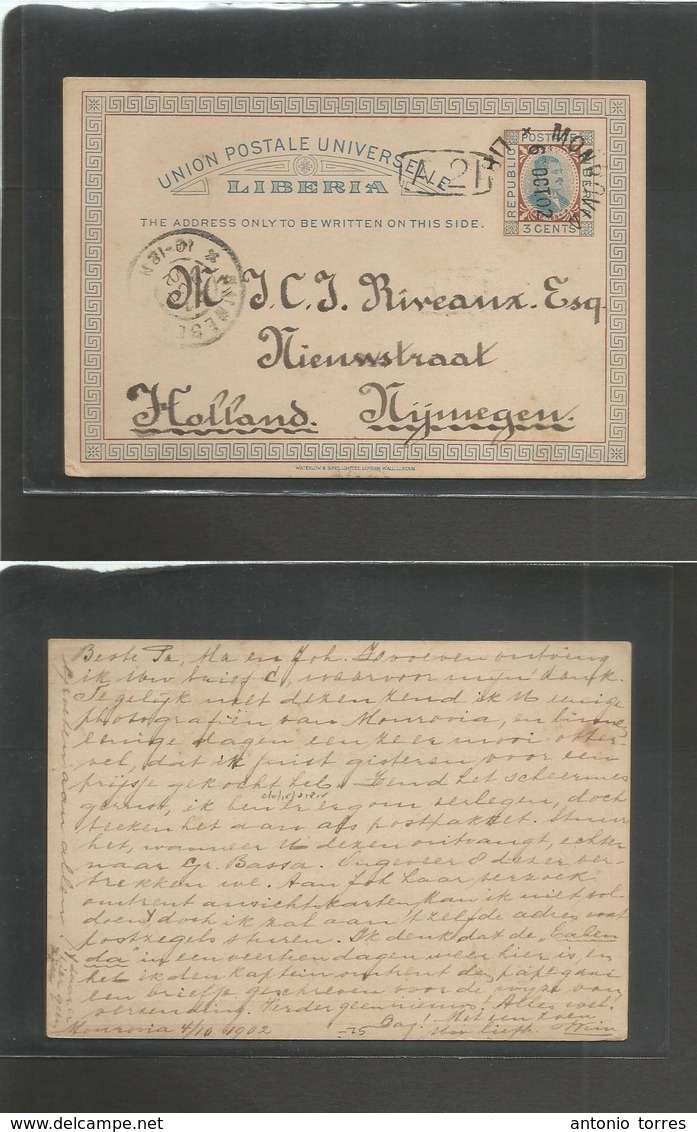 UNION POSTALE UNIVERSELLE
LIBERIA
A 21
MONROVIA
6 OCT 02
POSTAGE
REPUBLIC
LIBERIA
3 CENTS
THE ADDRESS ONLY TO BE WRITTEN ON THIS SIDE.
10-12 N
Mr J.C.J. Riveaux. Esq.
Nieuwstraat
Holland. Nijmegen.
WATERLOW & SONS LIMITED, LONDON WALL, LONDON
Beste Pa, Ma en Joh. Zooeven ontving
ik Uw brief C, waarvoor mijn dank.
Tegelijk met dezen zend ik U eenige
photografiën van Monrovia, en binnen
eenige dagen een zeer mooi otter-
vel, dat ik juist gisteren voor een
prijsje gekocht heb. Zend het scheermes
gerust, ik ben er erg om verlegen, doch
teeken het aan als postpakket. Stuur
het, wanneer U dezen ontvangt, echter
naar Gr. Bassa. Ongeveer 8 dezer ver-
trekken we. Aan Joh haar verzoek
omtrent ansichtskarten kan ik niet vol-
doen, doch ik zal aan 't zelfde adres wat
postzegels sturen. Ik denk dat de "Calen
da" in een veertien dagen weer hier is, en
heb ik den kaptein omtrent de papegaai
een briefje geschreven voor de wijze van
verzending. Verder geen nieuws! Alles wel.
Dag! Met een zoen
Monrovia 4/10 1902
-75
Uw liefh.
Groeten aan allen
antonio torres
www.delcampe.net